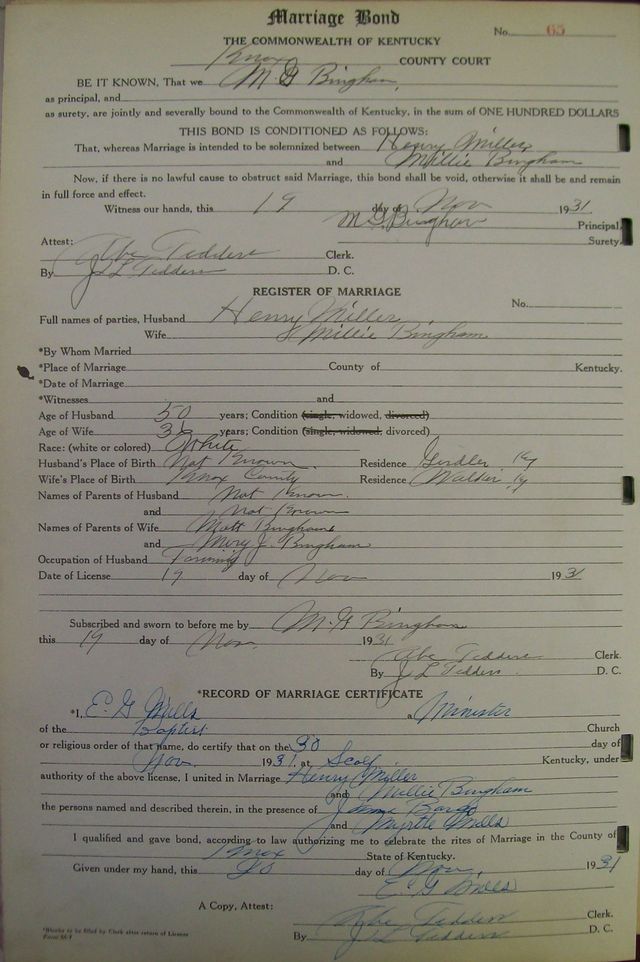 Marriage Bond
No. 65
THE COMMONWEALTH OF KENTUCKY
Knox COUNTY COURT
BE IT KNOWN, That we M G Bingham,
as principal, and
as surety, are jointly and severally bound to the Commonwealth of Kentucky, in the sum of ONE HUNDRED DOLLARS
THIS BOND IS CONDITIONED AS FOLLOWS:
That, whereas Marriage is intended to be solemnized between Henry Miller
and Millie Bingham
Now, if there is no lawful cause to obstruct said Marriage, this bond shall be void, otherwise it shall be and remain
in full force and effect.
Witness our hands, this 19 day of Nov 1931
M G Bingham Principal
Surety.
Attest:
Abe Tedders Clerk.
By J L Tedders D. C.
REGISTER OF MARRIAGE
No.
Full names of parties, Husband Henry Miller
Wife Millie Bingham
*By Whom Married
*Place of Marriage County of Kentucky.
*Date of Marriage
*Witnesses and
Age of Husband 50 years; Condition (single, widowed, divorced)
Age of Wife years; Condition (single, widowed, divorced)
Race: (white or colored) White
Husband's Place of Birth Not Known Residence Girdler Ky
Wife's Place of Birth Knox County Residence Ky
Names of Parents of Husband Not Known
and Not Known
Names of Parents of Wife Matt Bingham
and Mary J. Bingham
Occupation of Husband Farming
Date of License 19 day of Nov 1931
Subscribed and sworn to before me by M. G Bingham
this 19 day of Nov. 1931
Abe Tedders Clerk.
By J L Tedders D. C.
*RECORD OF MARRIAGE CERTIFICATE
*I, E. G Mills a Minister
of the Baptist Church
or religious order of that name, do certify that on the 30 day of
Nov. 1931 at Scalf Kentucky, under
authority of the above license, I united in Marriage Henry Miller
and Millie Bingham
the persons named and described therein, in the presence of Bargo
and Myrtle Mills
I qualified and gave bond, according to law authorizing me to celebrate the rites of Marriage in the County of
Knox State of Kentucky.
Given under my hand, this 30 day of Nov 1931
E G Mills
A Copy, Attest:
Abe Tedders Clerk.
By J L Tedders D. C.
*Blanks to be filled by Clerk after return of License